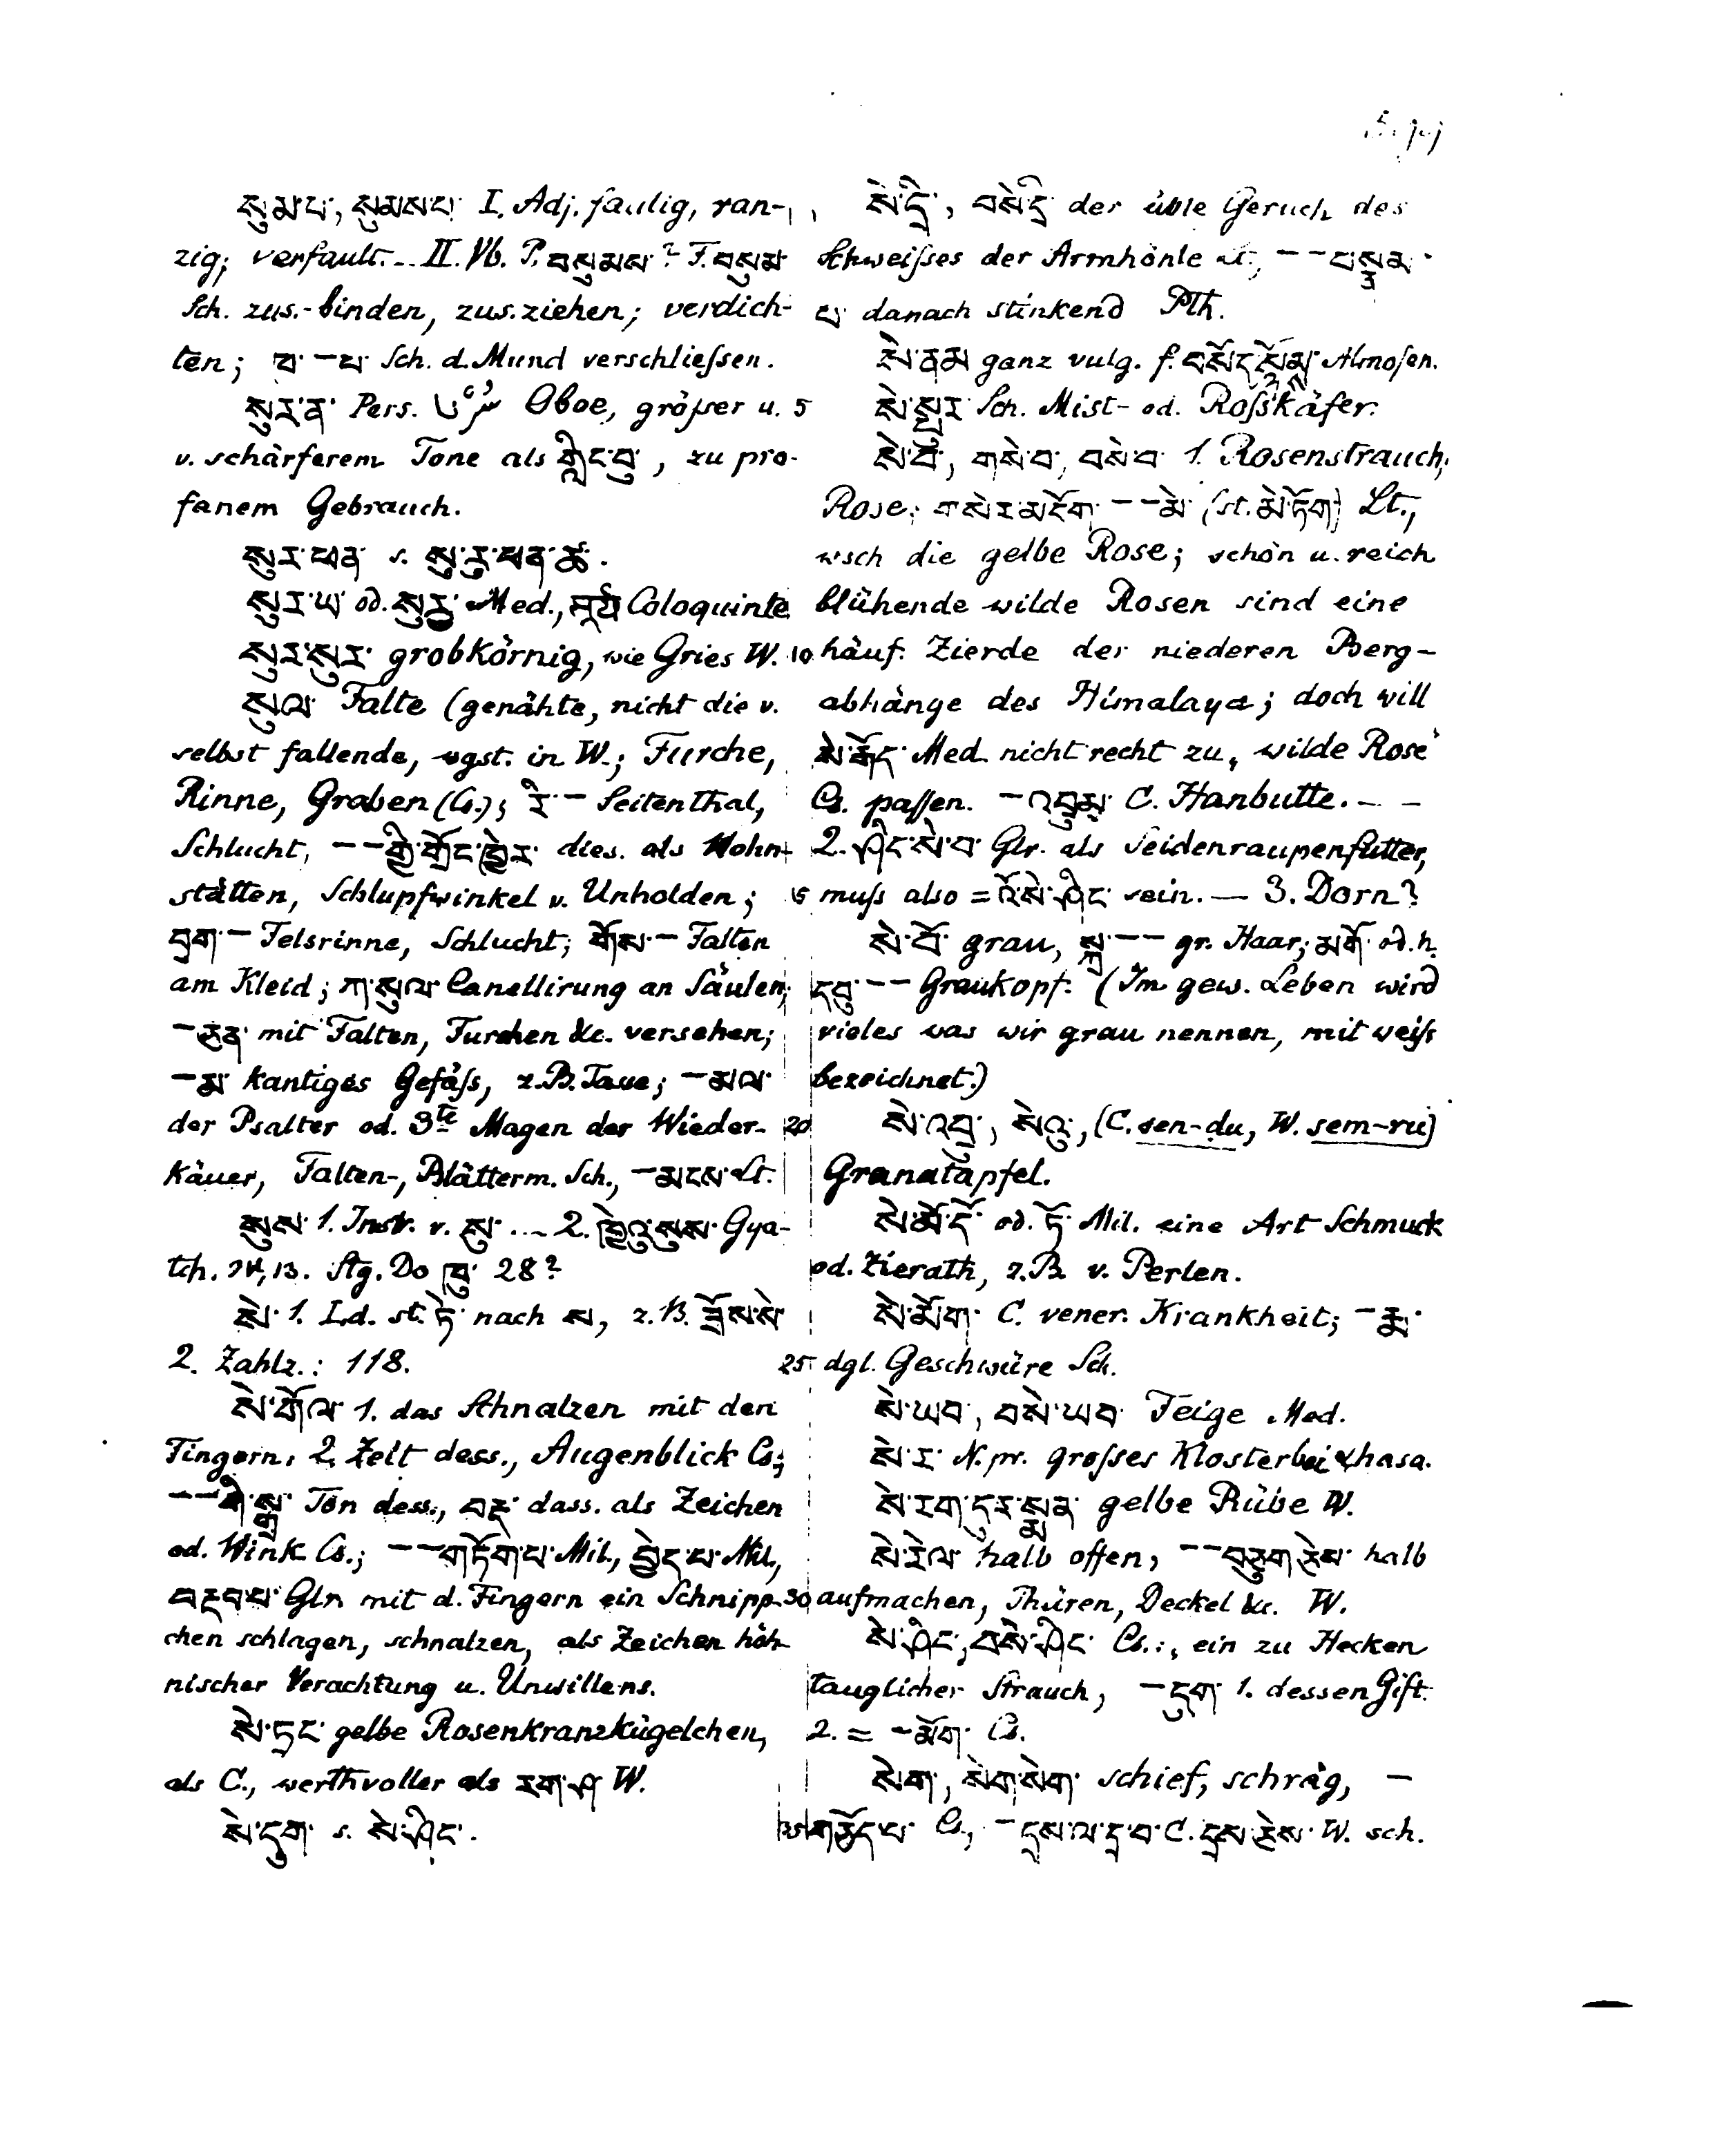 སུམ་པ་, སུམས་པ་ I. Adj. faulig, ran-
zig; verfault. -- II. Vb. P. བསུམས་? F. བསུམ་
Sch. zus.-binden, zus.ziehen; verdich-
ten; ཁ་ – པ་ Sch. d. Mund verschließen.
སུར་ན་ Pers. Oboe, größer u.
v. schärferem Tone als གླིང་བུ་, zu pro-
fanem Gebrauch.
སུར་ཕན་ s. སུ་རུ་ཕན་ཚ་.
སུར་ཡ་ od. སུརྱ་ Med., Coloquinte
སུར་སུར་ grobkörnig, wie Gries W.
སུལ་ Falte (genähte, nicht die v.
selbst fallende, vgst. in W.; Furche,
Rinne, Graben (Cs.); རི་ – Seitenthal,
Schlucht, – – གྱི་གྲོང་ཁྱེར་ dies. als Wohn-
stätten, Schlupfwinkel v. Unholden;
བྲག་ – Felsrinne, Schlucht; གོས་ – Falten
am Kleid; ཀ་སུལ་ Canellirung an Säulen;
– ཅན་ mit Falten, Furchen &c. versehen;
– མ་ kantiges Gefäß, z.B. Taue; – མལ་
der Psalter od. 3te Magen der Wieder-
käuer, Falten-, Blätterm. Sch., – མངས་ Lt.
སུས་ 1. Instr. v. སུ་ ... – 2. ཁྱེའུ་སུས་ Gya-
tch. Stg. Do ཁུ་ 28?
སེ་ 1. Ld. st. ཏེ་ nach ས, z.B. ཟོས་སེ་
2. Zahlz.: 118.
སེ་གོལ་ 1. das Schnalzen mit den
Fingern, 2. Zeit dess., Augenblick Cs.;
– – གི་སྒྲ་ Ton dess., བརྡ་ dass. als Zeichen
od. Wink Cs.; – – གཏོགས་པ་ Mil., བྱེད་པ་ Mil.,
བརྡབ་པ་ Glr. mit d. Fingern ein Schnipp-
chen schlagen, schnalzen, als Zeichen höh-
nischer Verachtung u. Unwillens.
སེ་ཏང་ gelbe Rosenkranzkügelchen,
als C., werthvoller als རག་ཤ་ W.
སེ་དུག་ s. སེ་ཤིང་.
སེ་དྲི་, བསེ་དྲི་ der üble Geruch des
Schweißes der Armhöhle Lt., – – བསྣམ་
པ་ danach stinkend Pth.
སེ་ནམ་ ganz vulg. f. བསོད་སྙོམས་ Almosen.
སེ་སྦུར་ Sch. Mist- od. Roßkäfer.
སེ་བ་, གསེ་བ་, བསེ་བ་ 1. Rosenstrauch,
Rose; གསེར་མདོག་ – – མེ་ (st. མེ་ཏོག) Lt.,
wsch die gelbe Rose; schön u. reich
blühende wilde Rosen sind eine
häuf. Zierde der niederen Berg-
abhänge des Himalaya; doch will
སེ་རྒོད་ Med. nicht recht zu „wilde Rose"
Cs. passen. – འབྲུམ་ C. Hanbutte. – –
2. ཤིང་སེ་བ་ Glr. als Seidenraupenfutter,
muß also = འོ་སེ་ཤིང་ sein. – 3. Dorn?
སེ་བོ་ grau, སྐྲ་ – – gr. Haar; མགོ་ od. h.
དབུ་ – – Graukopf. (Im gew. Leben wird
vieles was wir grau nennen, mit weiß
bezeichnet.)
སེ་འབྲུ་, སེའུ་, (C. sen-du, W. sem-ru)
Granatapfel.
སེ་མོ་དོ་ od. ཏོ་ Mil. eine Art Schmuck
od. Zierath, z.B. v. Perlen.
སེ་མོག་ C. vener. Krankheit; – རྨ་
dgl. Geschwüre Sch.
སེ་ཡབ་, བསེ་ཡབ་ Feige Med.
སེ་ར་ N. pr. großes Kloster bei Lhasa.
སེ་རག་དུར་སྨན་ gelbe Rübe W.
སེ་རེལ་ halb offen, – – བཅུག་ཅེས་ halb
aufmachen, Thüren, Deckel &c. W.
སེ་ཤིང་, བསེ་ཤིང་ Cs.:, ein zu Hecken
tauglicher Strauch, – དུག་ 1. dessen Gift.
2. = – མོག་ Cs.
སེག་, སེག་སེག་ schief, schräg, –
གཅོད་པ་ Cs., – དྲས་ལ་དྲ་བ་ C. དྲས་ཅེས་ W. sch.